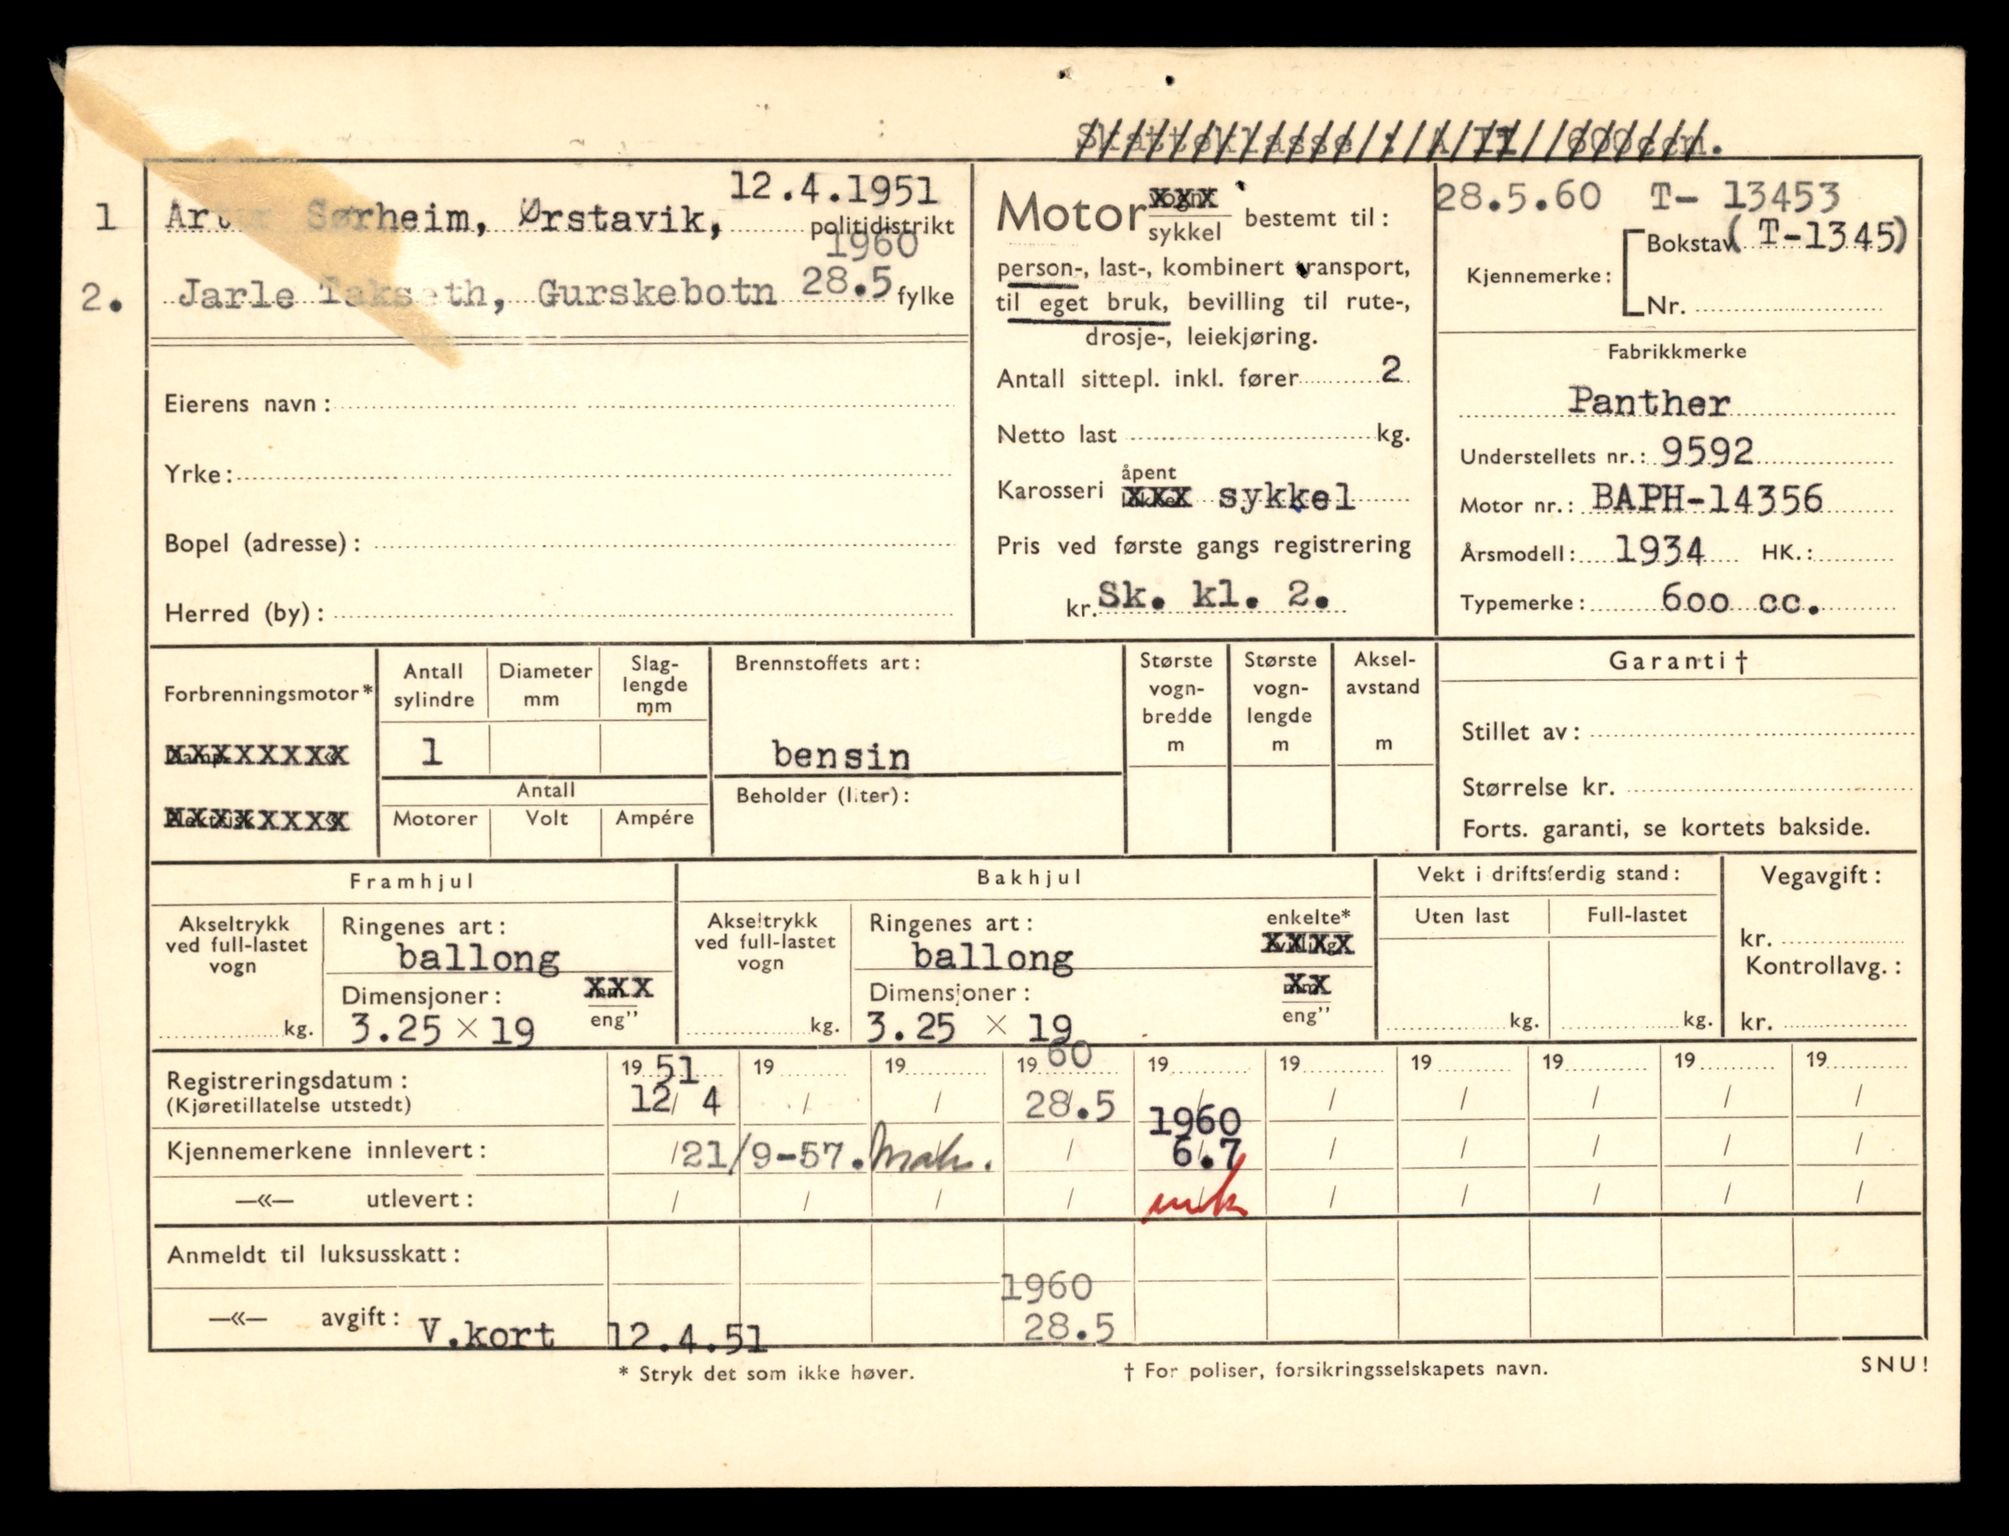 12.4.1951
1 Sørheim, Ørstavik, politidistrikt
1960
2. Jarle Gurskebotn 28.5 fylke
Eierens navn:
Yrke:
Bopel (adresse):
Herred (by):
Motor sykkel bestemt til:
person-, last-, kombinert transport,
til eget bruk, bevilling til rute-,
drosje-, leiekjøring.
Antall sittepl. inkl. fører 2
Netto last kg.
Karosseri åpent sykkel
Pris ved første gangs registrering
kr. Sk. kl. 2.
28.5.60 T- 13453
Bokstav (T-1345)
Kjennemerke:
Nr.
Fabrikkmerke
Panther
Understellets nr.: 9592
Motor nr.: BAPH-14356
Årsmodell: 1934 HK.:
Typemerke: 600 cc.
Forbrenningsmotor*
Antall sylindre
1
Diameter mm
Slag-
lengde
mm
Antall
Motorer Volt Ampére
Brennstoffets art:
bensin
Beholder (liter):
Største
vogn-
bredde
m
Største
vogn-
lengde
m
Aksel-
avstand
m
Garanti †
Stillet av:
Størrelse kr.
Forts. garanti, se kortets bakside.
Framhjul
Akseltrykk
ved full-lastet
vogn
kg.
Ringenes art:
ballong
Dimensjoner:
3.25 × 19 eng"
Bakhjul
Akseltrykk
ved full-lastet
vogn
kg.
Ringenes art: enkelte*
ballong
Dimensjoner:
3.25 × 19 eng"
Vekt i driftsferdig stand:
Uten last Full-lastet
kg. kg.
Vegavgift:
kr.
Kontrollavg.:
kr.
Registreringsdatum: 19 51 19 19 19 60 19 19 19 19 19 19
(Kjøretillatelse utstedt) 12/ 4 / / 28.5 / / / / / /
1960
Kjennemerkene innlevert: / 21/9-57. / 6.7 / / / / /
—«— utlevert: / / / / / / / / /
Anmeldt til luksusskatt:
1960
—«— avgift: V.kort 12.4.51 28.5
* Stryk det som ikke høver. † For poliser, forsikringsselskapets navn. SNU!